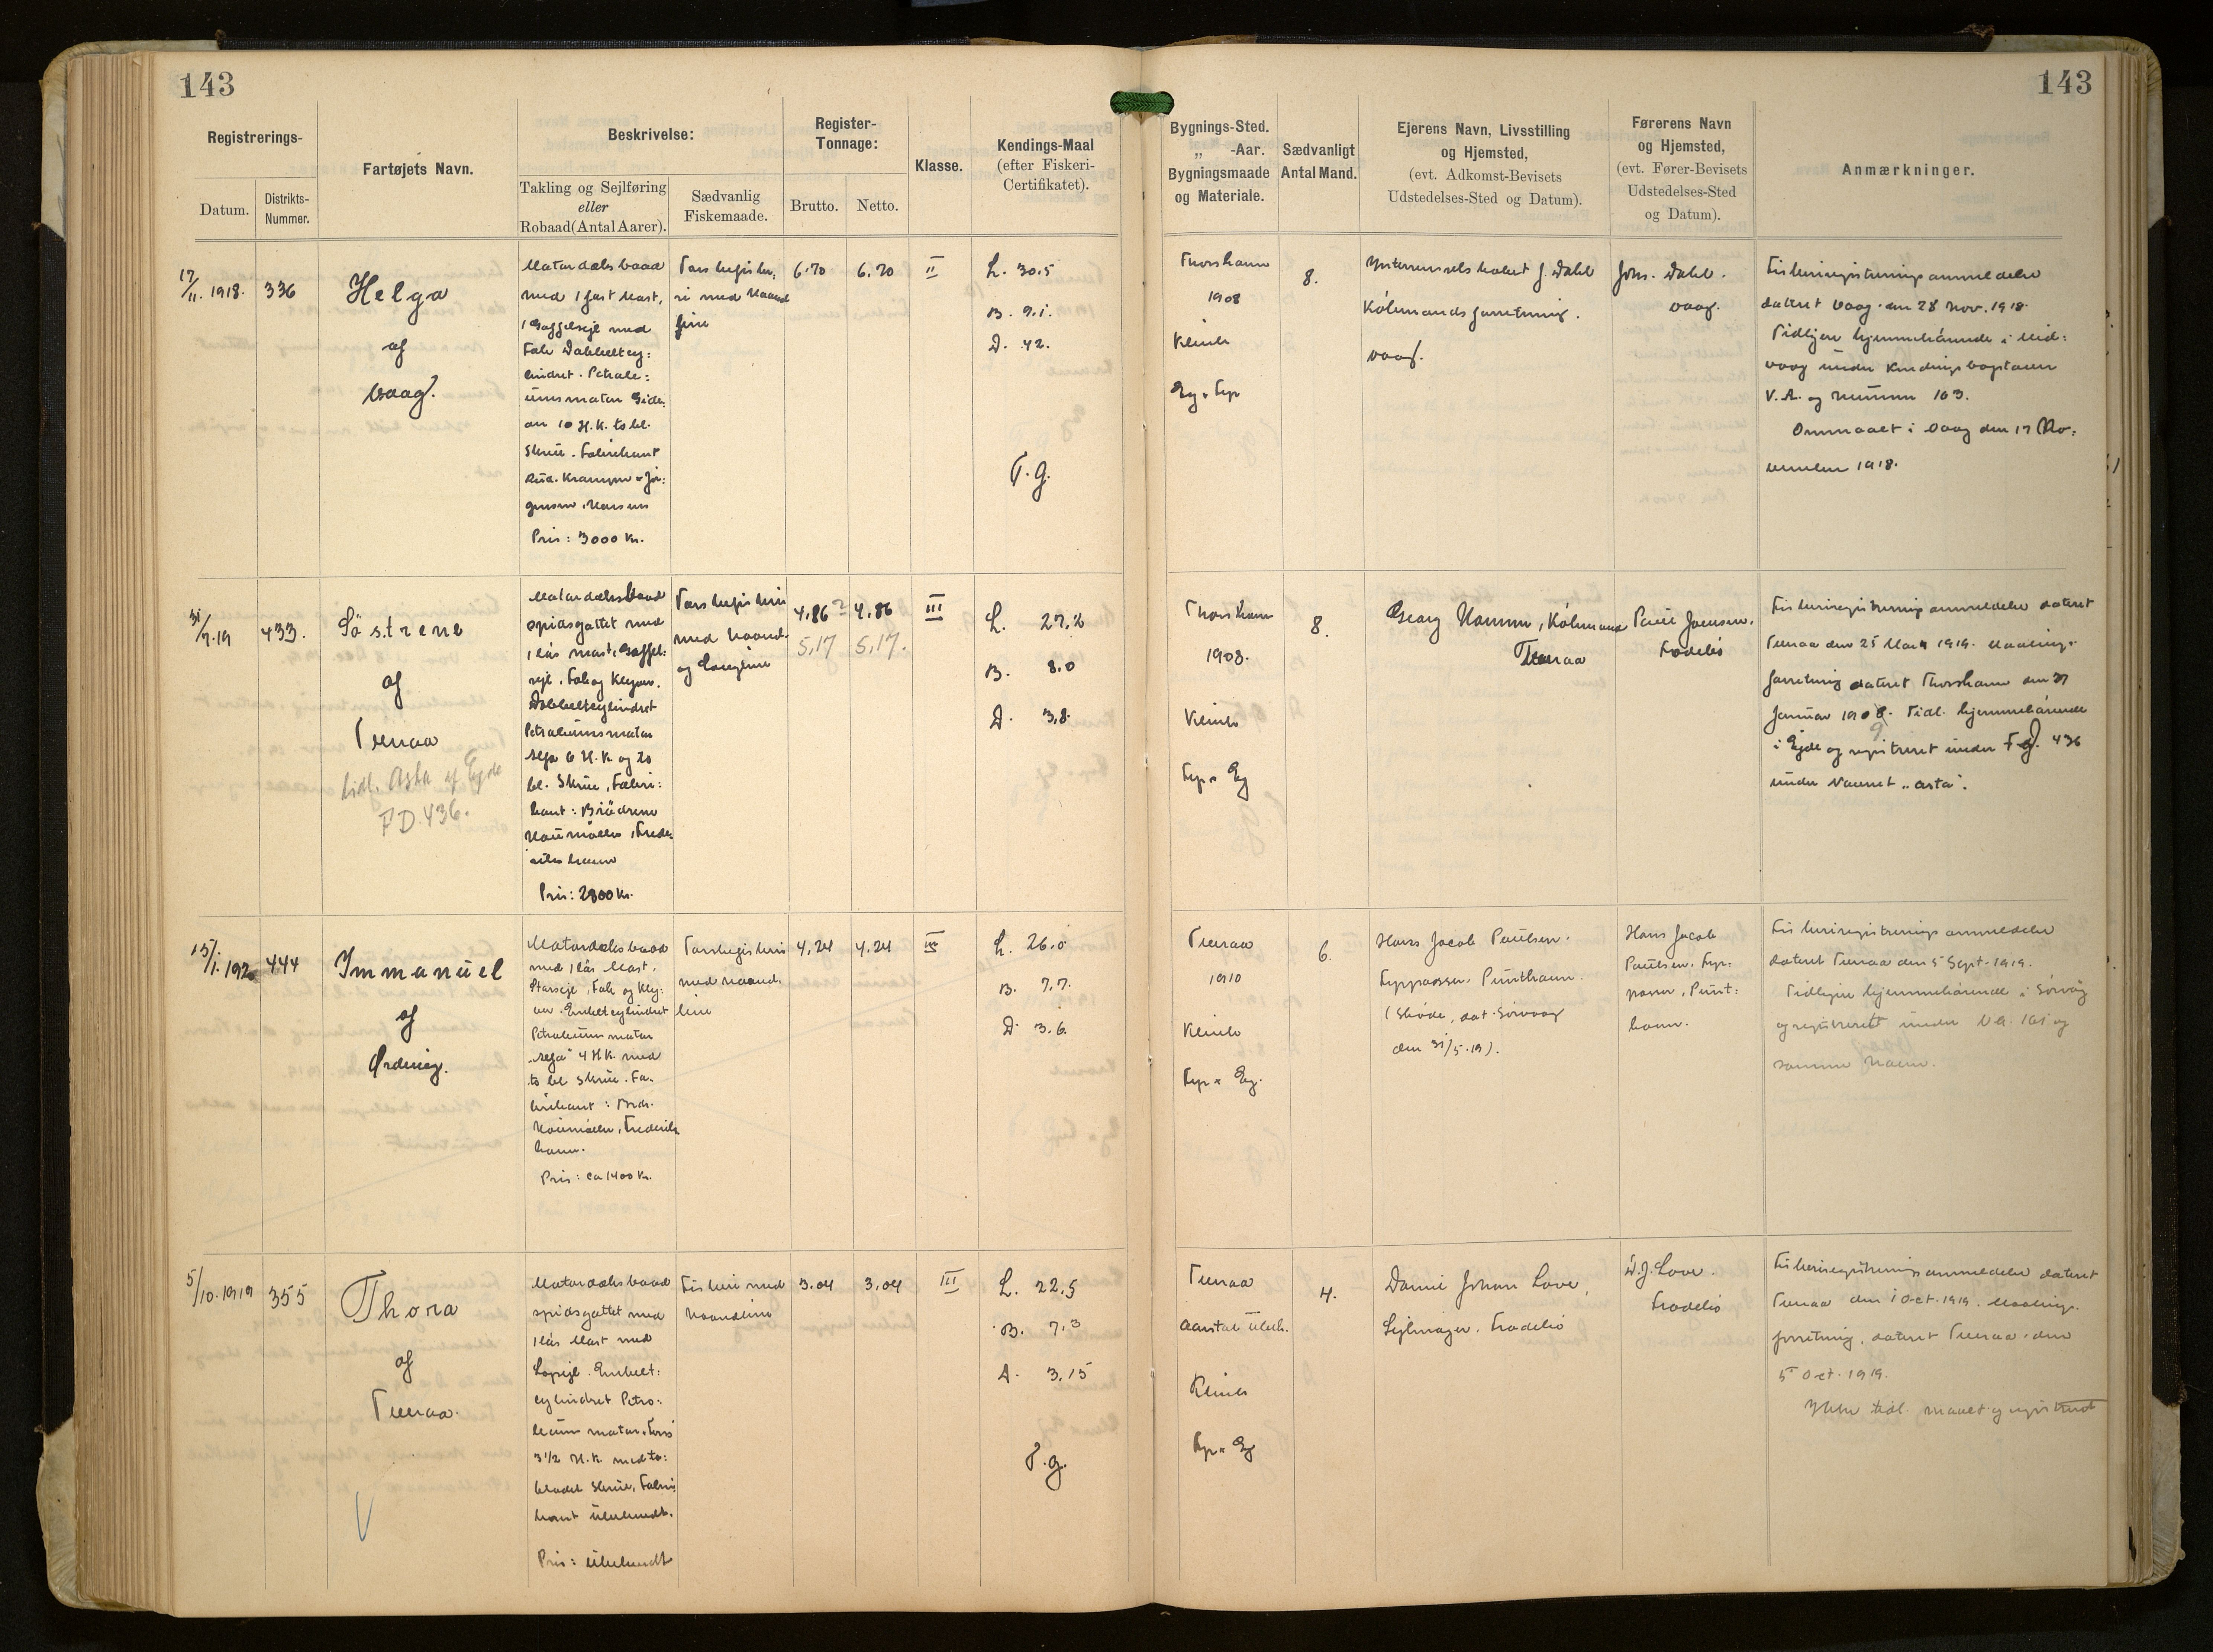 143
143
Registrerings-
Datum.
Distrikts-
Nummer.
Fartøjets Navn.
Beskrivelse:
Takling og Sejlføring
eller
Robaad (Antal Aarer).
Sædvanlig
Fiskemaade.
Register-
Tonnage:
Brutto.
Netto.
Klasse.
Kendings-Maal
(efter Fiskeri-
Certifikatet).
Bygnings-Sted.
„ -Aar.
Bygningsmaade
og Materiale.
Sædvanligt
Antal Mand.
Ejerens Navn, Livsstilling
og Hjemsted,
(evt. Adkomst-Bevisets
Udstedelses-Sted og Datum).
Førerens Navn
og Hjemsted,
(evt. Fører-Bevisets
Udstedelses-Sted
og Datum).
Anmærkninger.
17/11. 1918.
336
Helga
af
Vaag.
Motordæksbaad
med 1 fast Mast,
1 Gaffelsejl med
Fok Dobbeltcy:
lindret. Petrole:
umsmotor Gide:
on 10 H.K. to bl.
Skrue. Fabrikant
Rud. Kramper & Jør:
gensen, Horsens
Pris: 3000 Kr.
Torskefiske:
ri med Haand
line
6.70
6.70
II
L. 30.5
B. 9.1.
D. 42.
F.G.
Thorshavn
1908
Klink
Eg & Fyr
8.
Interessentskabet J. Dahl
Købmandsforretning.
Vaag.
Johs. Dahl.
Vaag.
Fiskeriregistreringsanmeldelse
dateret Vaag den 28 Nov. 1918.
Tidligere hjemmehørende i Mid:
vaag under Kendingsbogstaver
V.A. og Nummer 103.
Ommaalt i Vaag den 17 No:
vember 1918.
31/7.19
433.
Söstrene
af
Tveraa
tidl. Asta af Ejde
FD.436.
Motordæksbaad
spidsgattet med
1 løs Mast, Gaffel:
sejl, Fok og Klyver.
Dobbeltcylindret
Petroleumsmotor
Alfa 6 H.K. og to
bl. Skrue, Fabri:
kant: Brödrene
Houmøller, Frede:
rikshavn
Pris: 2800 Kr.
Torskefiskeri
med Haand-
og Langline
4.86?
4.86
5,17
5,17.
III
L. 27,2
B. 8.0
D. 3,8.
Thorshavn
1903.
Klink
Fyr & Eg
8.
Georg Hammer, Købmand
Tveraa
Poul Joensen,
Frodebö
Fiskeriregistreringsanmeldelse dateret
Tveraa den 25 Marts 1919. Maalings-
forretning dateret Thorshavn den 27
Januar 1908. Tidl. hjemmehørende
9
i Ejde og registreret under F.G. 436
under Navnet „Asta".
15/1. 1920
444
Immanuel
af
Ördevig.
Motordæksbaad
med 1 løs Mast,
Storsejl, Fok og Kly:
ver. Enkeltcylindret
Petroleumsmotor
„Alfa" 4 H.K. med
to bl Skrue. Fa-
brikant: Brdr.
Houmøller, Frederiks
havn.
Pris: ca 1400 Kr.
Torskefiskeri
med Haand:
line
4.24
4.24
III
L. 26.0
B. 7.7.
D. 3.6.
Tveraa
1910
Klink
Fyr & Eg.
6.
Hans Jacob Poulsen.
Fyrpasser. Punthavn.
(Skøde, dat. Sörvaag
den 31/5.19).
Hans Jacob
Poulsen. Fyr:
passer, Punt:
havn.
Fiskeriregistreringsanmeldelse
dateret Tveraa den 5 Sept. 1919.
Tidligere hjemmehørende i Sörvåg
og registreret under V.A. 161 og
samme Navn.
5/10.1919
355
Thora
af
Tveraa.
Motordæksbaad
spidsgattet med
1 løs Mast med
Lugsejl. Enkelt:
cylindret Petro:
leumsmotor,
3½ H.K. med to:
bladet Skrue, Fabri:
kant ubekendt.
Pris: ubekendt
Fiskeri med
Haandline
3.04
3.04
III
L. 22,5
B. 7,3
D. 3,15
F.G.
Tveraa
Aarstal ubek.
Klink
Fyr & Eg
4.
Daniel Johan Love,
Sejlmager. Frodebö
D.J. Love.
Frodebö
Fiskeriregistreringsanmeldelse dateret
Tveraa den 1 Oct. 1919. Maalings-
forretning, dateret Tveraa den
5 Oct. 1919.
Ikke tidl. maalt og registreret